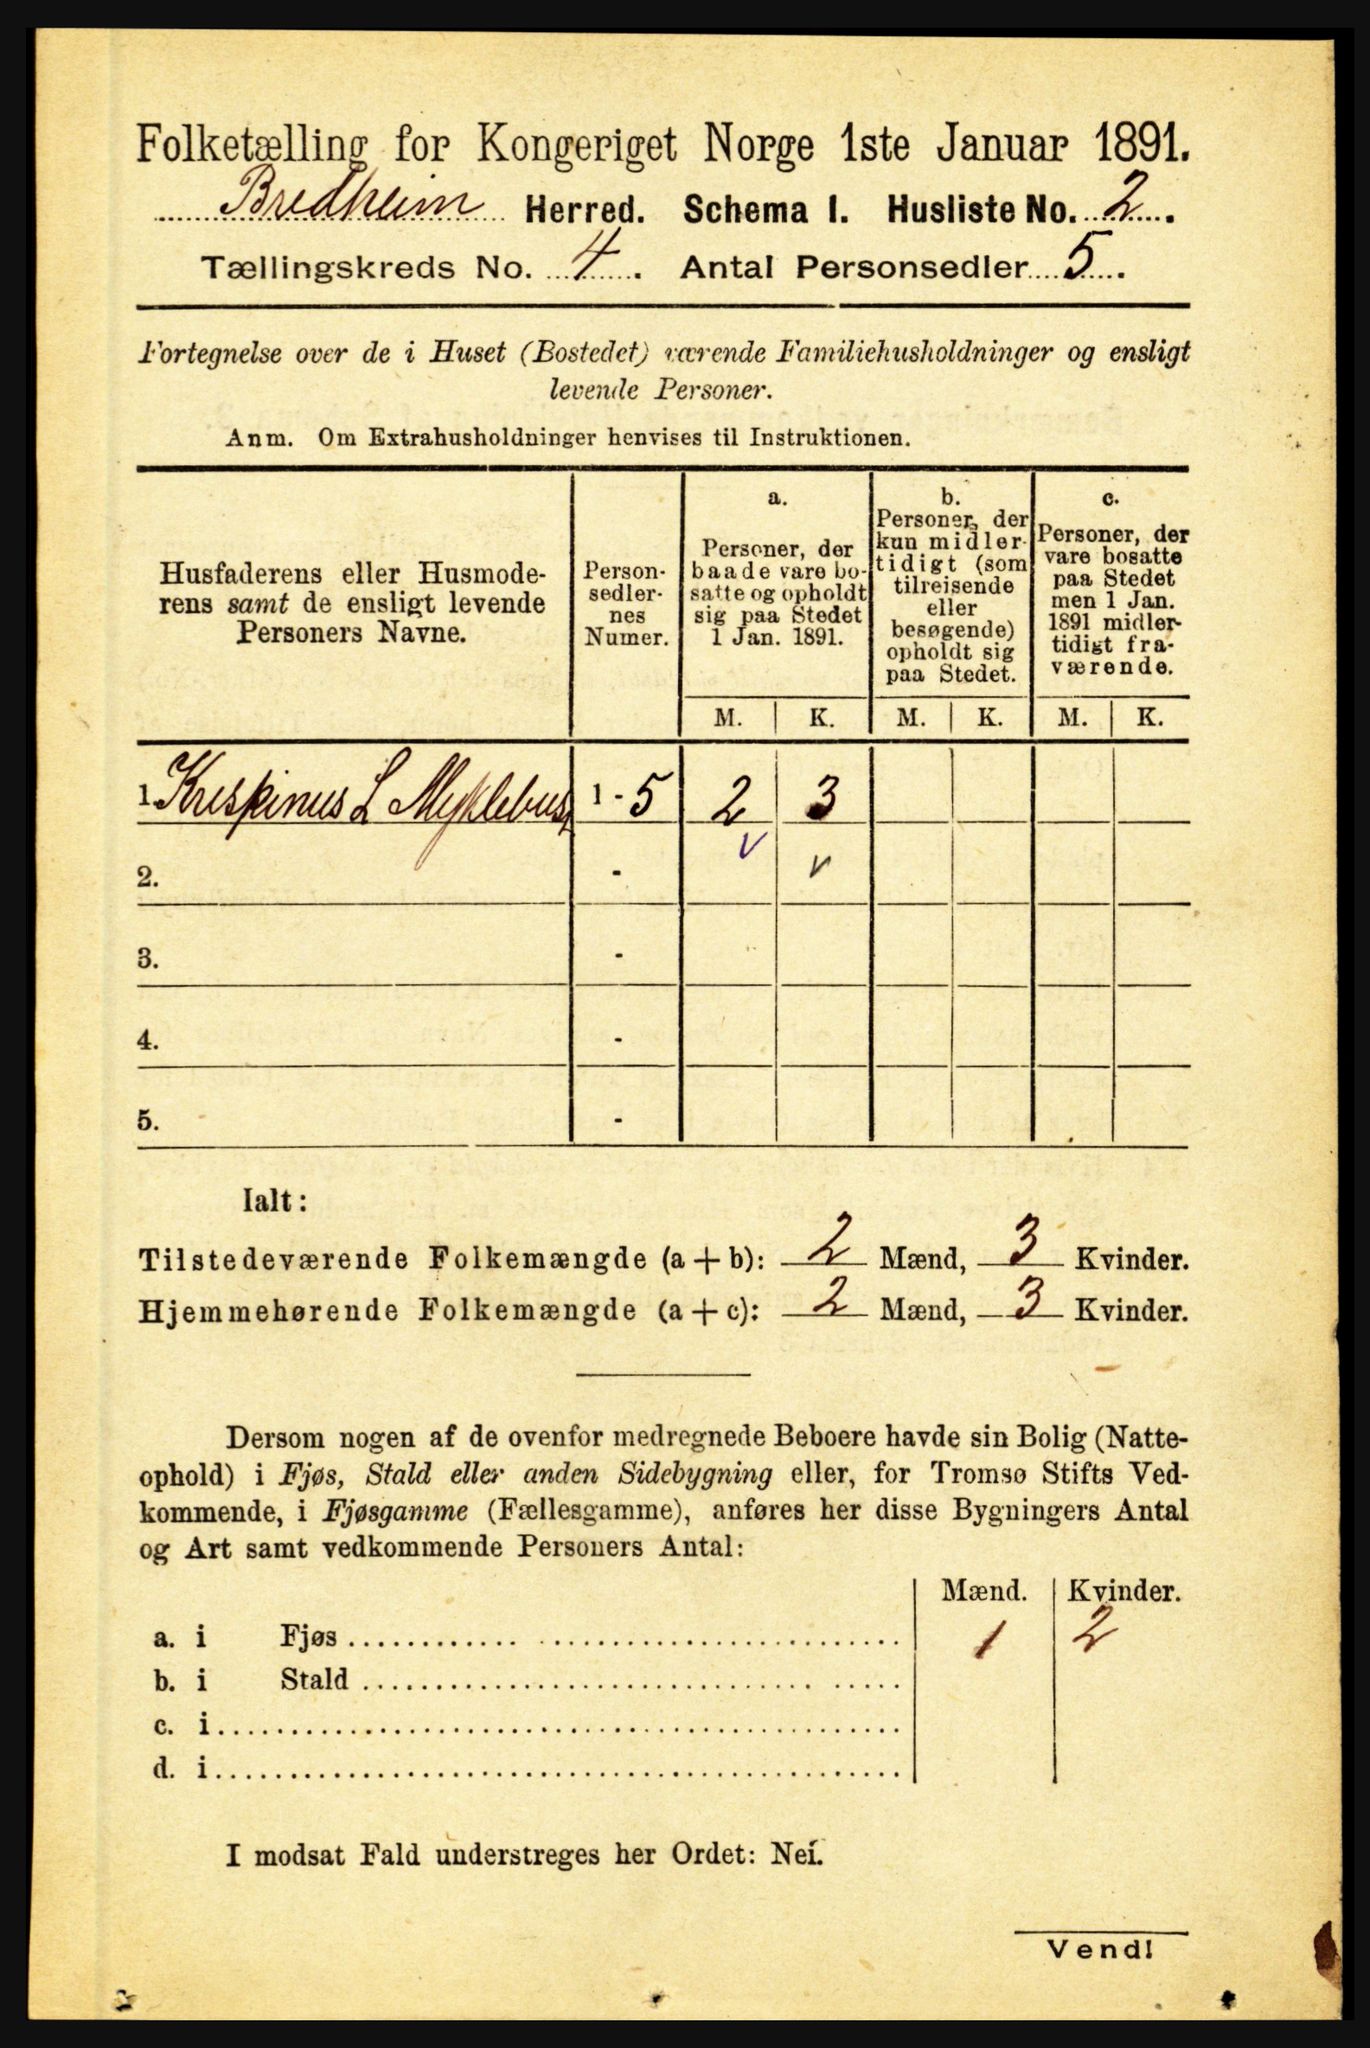 Folketælling for Kongeriget Norge 1ste Januar 1891.
Bredheim Herred. Schema I. Husliste No. 2.
Tællingskreds No. 4. Antal Personsedler 5.
Fortegnelse over de i Huset (Bostedet) værende Familiehusholdninger og ensligt
levende Personer.
Anm. Om Extrahusholdninger henvises til Instruktionen.
Husfaderens eller Husmode-
rens samt de ensligt levende
Personers Navne.
Person-
sedler-
nes
Numer.
a.
Personer, der
baade vare bo-
satte og opholdt
sig paa Stedet
1 Jan. 1891.
b.
Personer, der
kun midler-
tidigt (som
tilreisende
eller
besøgende)
opholdt sig
paa Stedet.
c.
Personer, der
vare bosatte
paa Stedet
men 1 Jan.
1891 midler-
tidigt fra-
værende.
M. K. M. K. M. K.
1. Krispinus L Myklebust 1 - 5 2 3
2. -
3. -
4. -
5. -
Ialt:
Tilstedeværende Folkemængde (a + b): 2 Mænd, 3 Kvinder.
Hjemmehørende Folkemængde (a + c): 2 Mænd, 3 Kvinder.
Dersom nogen af de ovenfor medregnede Beboere havde sin Bolig (Natte-
ophold) i Fjøs, Stald eller anden Sidebygning eller, for Tromsø Stifts Ved-
kommende, i Fjøsgamme (Fællesgamme), anføres her disse Bygningers Antal
og Art samt vedkommende Personers Antal:
Mænd. Kvinder.
a. i Fjøs 1 2
b. i Stald
c. i
d. i
I modsat Fald understreges her Ordet: Nei.
Vend!